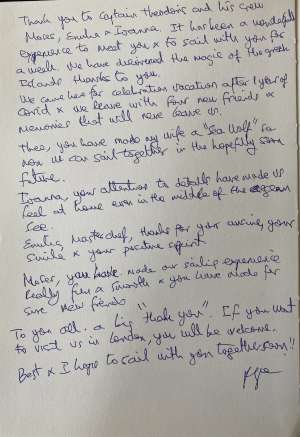 Thank you to Captain Theodoris and his crew
Moses, Emilia & Ioanna. It has been a wonderful
experience to meet you & to sail with you for
a week. We have discovered the magic of the greek
Islands thanks to you.
We came here for celebration vacation after 1 year of
Covid & we leave with four new friends &
memories that will never leave us.
Theo, you have made my wife a "Sea Wolf" so
now we can sail together in the hopefully soon
future.
Ioanna, your attention to details have made us
feel at home even in the middle of the aegean
see.
Emilia, Masterchef, thanks for your cuisine, your
smile & your positive spirit
Moses, you have made our sailing experience
really fun & smooth & you have made for
sure new friends
To you all, a big "thank you". If you want
to visit us in London, you will be welcome.
Best & I hope to sail with you together soon!!